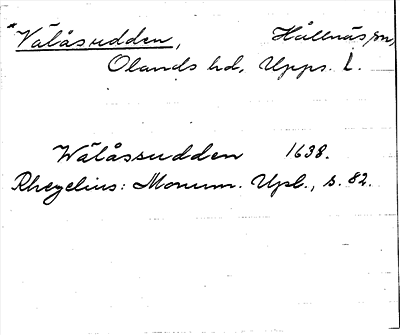 *Välåsudden, Hållnäs sn,
Olands hd, Upps. L.
Wälåssudden 1638.
Rhezelius: Monum. Upl., s. 82.